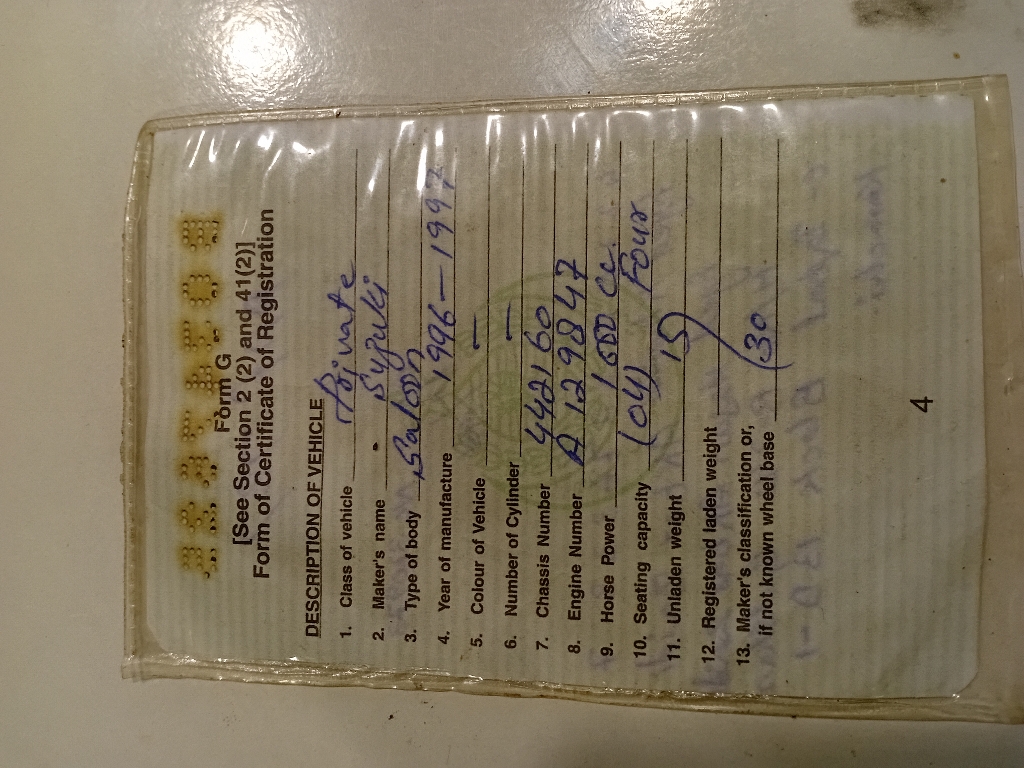 Form G
[See Section 2 (2) and 41(2)]
Form of Certificate of Registration
DESCRIPTION OF VEHICLE
1. Class of vehicle Private
2. Maker's name - Suzuki
3. Type of body Saloon
4. Year of manufacture 1996-1997
5. Colour of Vehicle —
6. Number of Cylinder —
7. Chassis Number 442160
8. Engine Number A 129847
9. Horse Power 1000 cc.
10. Seating capacity (04) Four
11. Unladen weight
12. Registered laden weight
13. Maker's classification or,
if not known wheel base
4